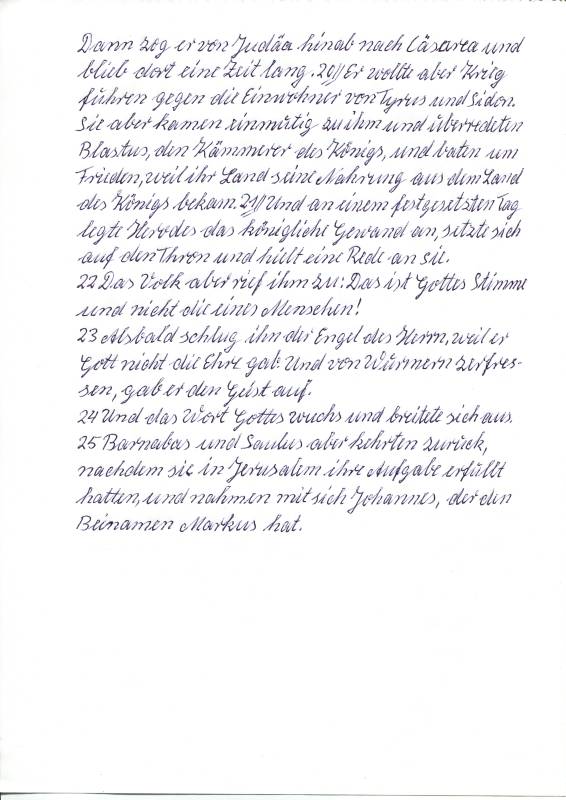 Dann zog er von Judäa hinab nach Cäsarea und
blieb dort eine Zeit lang. 20// Er wollte aber Krieg
führen gegen die Einwohner von Tyrus und Sidon.
Sie aber kamen einmütig zu ihm und überredeten
Blastus, den Kämmerer des Königs, und baten um
Frieden, weil ihr Land seine Nahrung aus dem Land
des Königs bekam. 21// Und an einem festgesetzten Tag
legte Herodes das königliche Gewand an, setzte sich
auf den Thron und hielt eine Rede an sie.
22 Das Volk aber rief ihm zu: Das ist Gottes Stimme
und nicht die eines Menschen!
23 Alsbald schlug ihn der Engel des Herrn, weil er
Gott nicht die Ehre gab. Und von Würmern zerfres-
sen, gab er den Geist auf.
24 Und das Wort Gottes wuchs und breitete sich aus.
25 Barnabas und Saulus aber kehrten zurück,
nachdem sie in Jerusalem ihre Aufgabe erfüllt
hatten, und nahmen mit sich Johannes, der den
Beinamen Markus hat.